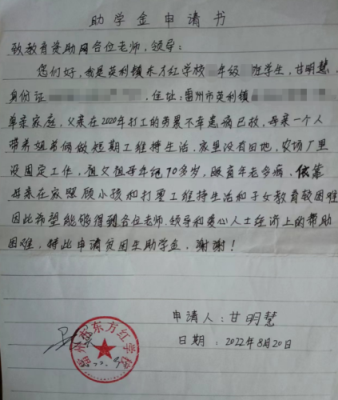 助学金申请书
致教育资助网各位老师、领导：
您们好，我是英利镇东方红学校 年级 班学生，甘明慧
身份证 ，住址：雷州市英利镇
单亲家庭，父亲在2020年打工的 不幸患病已故，母亲一个人
带着 做短期工维持生活，家里没有田地，农场厂里
没固定工作，祖父祖母年纪70多岁，患有老年病，依靠
母亲在家照顾小孩和打零工维持生活和子女教育较困难
因此希望能够得到各位老师、领导和爱心人士经济上的帮助
困难，特此申请贫困生助学金，谢谢！
雷州市东方红学校
申请人：甘明慧
日期：2022年8月20日